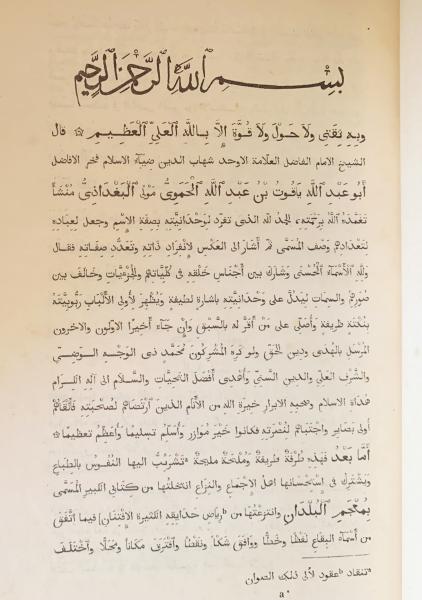 بسم ٱللّٰه ٱلرَّحْمٰنِ ٱلرَّحِيمِ
وبِهِ ثِقَتِى وَلَا حَوْلَ وَلَا قُوَّةَ إِلَّا بِٱللَّهِ ٱلْعَلِىِّ ٱلْعَظِيمِ ۞ قال
الشيخ الامام الفاضل العلامة الاوحد شهاب الدين ضياء الاسلام فخر الافاضل
أَبُو عَبْدِ ٱللَّهِ يَاقُوت بْن عَبْدِ ٱللَّهِ ٱلْحَمَوِىُّ مَوْلًى ٱلْبَغْدَاذِىُّ مَنْشَأً
تَغَمَّدَهُ ٱللّٰه بِرَحْمَتِهِ ۞ الحمد لله الذى تفرّد بوَحْدانيّته بصِفة الإِسْم وجعل لعباده
بتَعْدادِهِ وَصْفَ المُسَمَّى ثم أَشار الى العَكْس لإِنْفراد ذاته وتَعَدُّد صفاته فقال
وَلِلهِ ٱلْأَسْمَاءُ ٱلْحُسْنَى وَشَارَكَ بين أَجْناس خَلْقِهِ فى كُلِّيّاتهم والجُزْءيّات وخَالَفَ بين
صُوَرهم والسِمات ليَدُلّ على وَحْدانيّته باشارة لطيفة ويُظْهِرَ لِأُولى الأَلْبَاب رُبُوبِيَّتَهُ
بنُكْتة طريفة وأُصَلّى على مَنْ أُقِرَّ له بالسَّبْق وإِنْ جَاء أَخِيرًا الاوّلون والاخرون
المُرْسَلِ بالهُدَى ودين الحَقّ ولو كره المُشْرِكون مُحَمَّدٍ ذى الوَجْهِ الوَضِىّ
والشَّرَفِ العَلِىِّ والدين السَنِىّ وأُهْدى أَفْضَلَ التحيّات والسَّلام الى آلِهِ الكِرام
هُداة الاسلام وصحبه الابرار خيرة الله من الأَنَام الذين ٱرْتَضَاهُمْ لصُحْبَتِهِ فأَلْفَاهُمْ
أُولى بَصَاير واجْتَبَاهُم لنُصْرَته فكانوا خَيْرَ مُوَازِر وأُسَلِّمُ تسليما وأُعَظِّمُ تعظيمًا ۞
أَمَّا بَعْدُ فهذه طُرْفَةٌ طريفةٌ ومُلْحَةٌ مليحةٌ تَشْرَئِبّ اليها النُفُوسُ بالطِباع
ويشترك فى إِسْتِحْسانها اهل الاجْماع والنِزاع انتخلتُها من كتابى الكبير المُسَمَّى
بِمُعْجَمِ ٱلْبُلْدَانِ وانتزعتُها من b رِيَاضِ حدايقه الكثيرة الإِفْتِنان) فيما اتَّفَقَ
من أَسْمَاء البِقاع لَفْظًا وخَطًّا ووافق شَكْلًا ونَقْطًا وٱفْتَرَقَ مكانًا ومَحَلًّا وٱخْتَلَفَ
a تنقاد b عقود لألى ذلك الصوان
a*